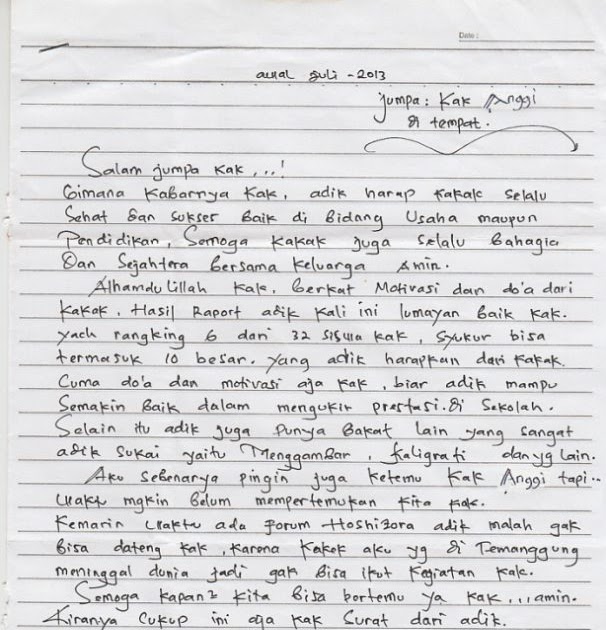 Date :
awal juli - 2013
jumpa : Kak Anggi
di tempat.
Salam jumpa kak, ...!
Gimana Kabarnya Kak, adik harap kakak selalu
Sehat dan sukses Baik di Bidang Usaha maupun
Pendidikan, Semoga kakak juga selalu Bahagia
Dan Sejahtera Bersama keluarga Amin.
Alhamdulillah kak, Berkat Motivasi dan do'a dari
kakak, Hasil Raport adik kali ini lumayan Baik kak.
yach rangking 6 dari 32 siswa kak, syukur bisa
termasuk 10 besar. yang adik harapkan dari kakak.
Cuma do'a dan motivasi aja kak, biar adik mampu
Semakin Baik dalam mengukir prestasi di Sekolah.
Selain itu adik juga Punya Bakat lain yang sangat
adik sukai yaitu Menggambar, kaligrafi dan yg lain.
Aku sebenarya pingin juga ketemu Kak Anggi tapi..
waktu mgkin Belum mempertemukan kita kak.
Kemarin waktu ada forum Hoshizora adik malah gak
Bisa dateng kak, Karena Kakek aku yg di Temanggung
meninggal dunia jadi gak Bisa ikut kegiatan kak.
Semoga kapan2 kita Bisa bertemu ya kak,...amin.
Kiranya Cukup ini aja kak Surat dari adik.